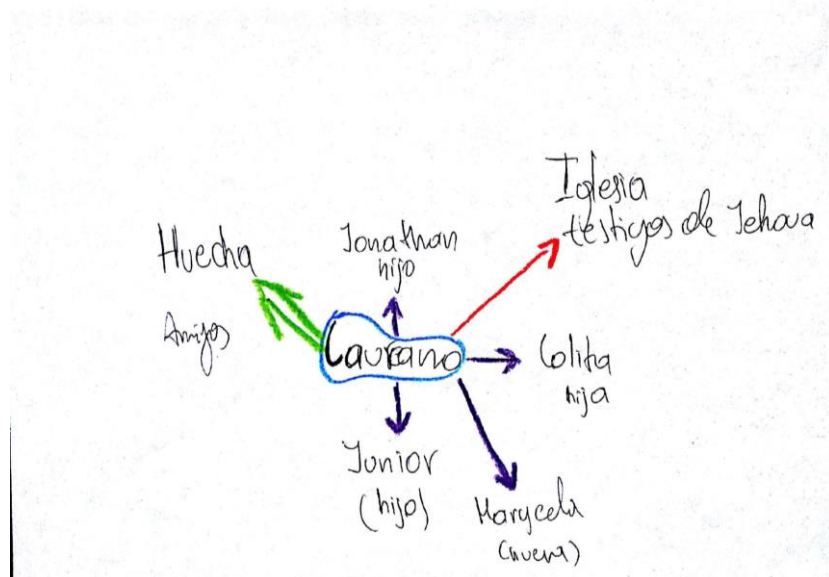 Iglesia
testigos de Jehova
Huecha
Amigos
Jonathan
hijo
Laureano
Lolita
hija
Junior
(hijo)
Marycela
(nuera)